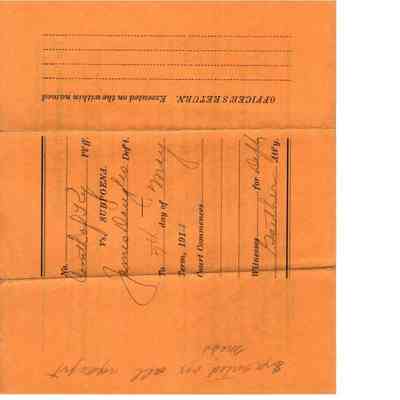 No.
Comth of Ky Pl'ff.
Vs. SUBPOENA.
James Douglas Def't.
To 7th day of May
Term, 191
Court Commences
Witnesses for Deft
Att'y.
OFFICER'S RETURN. Executed on the within named
Executed on all except